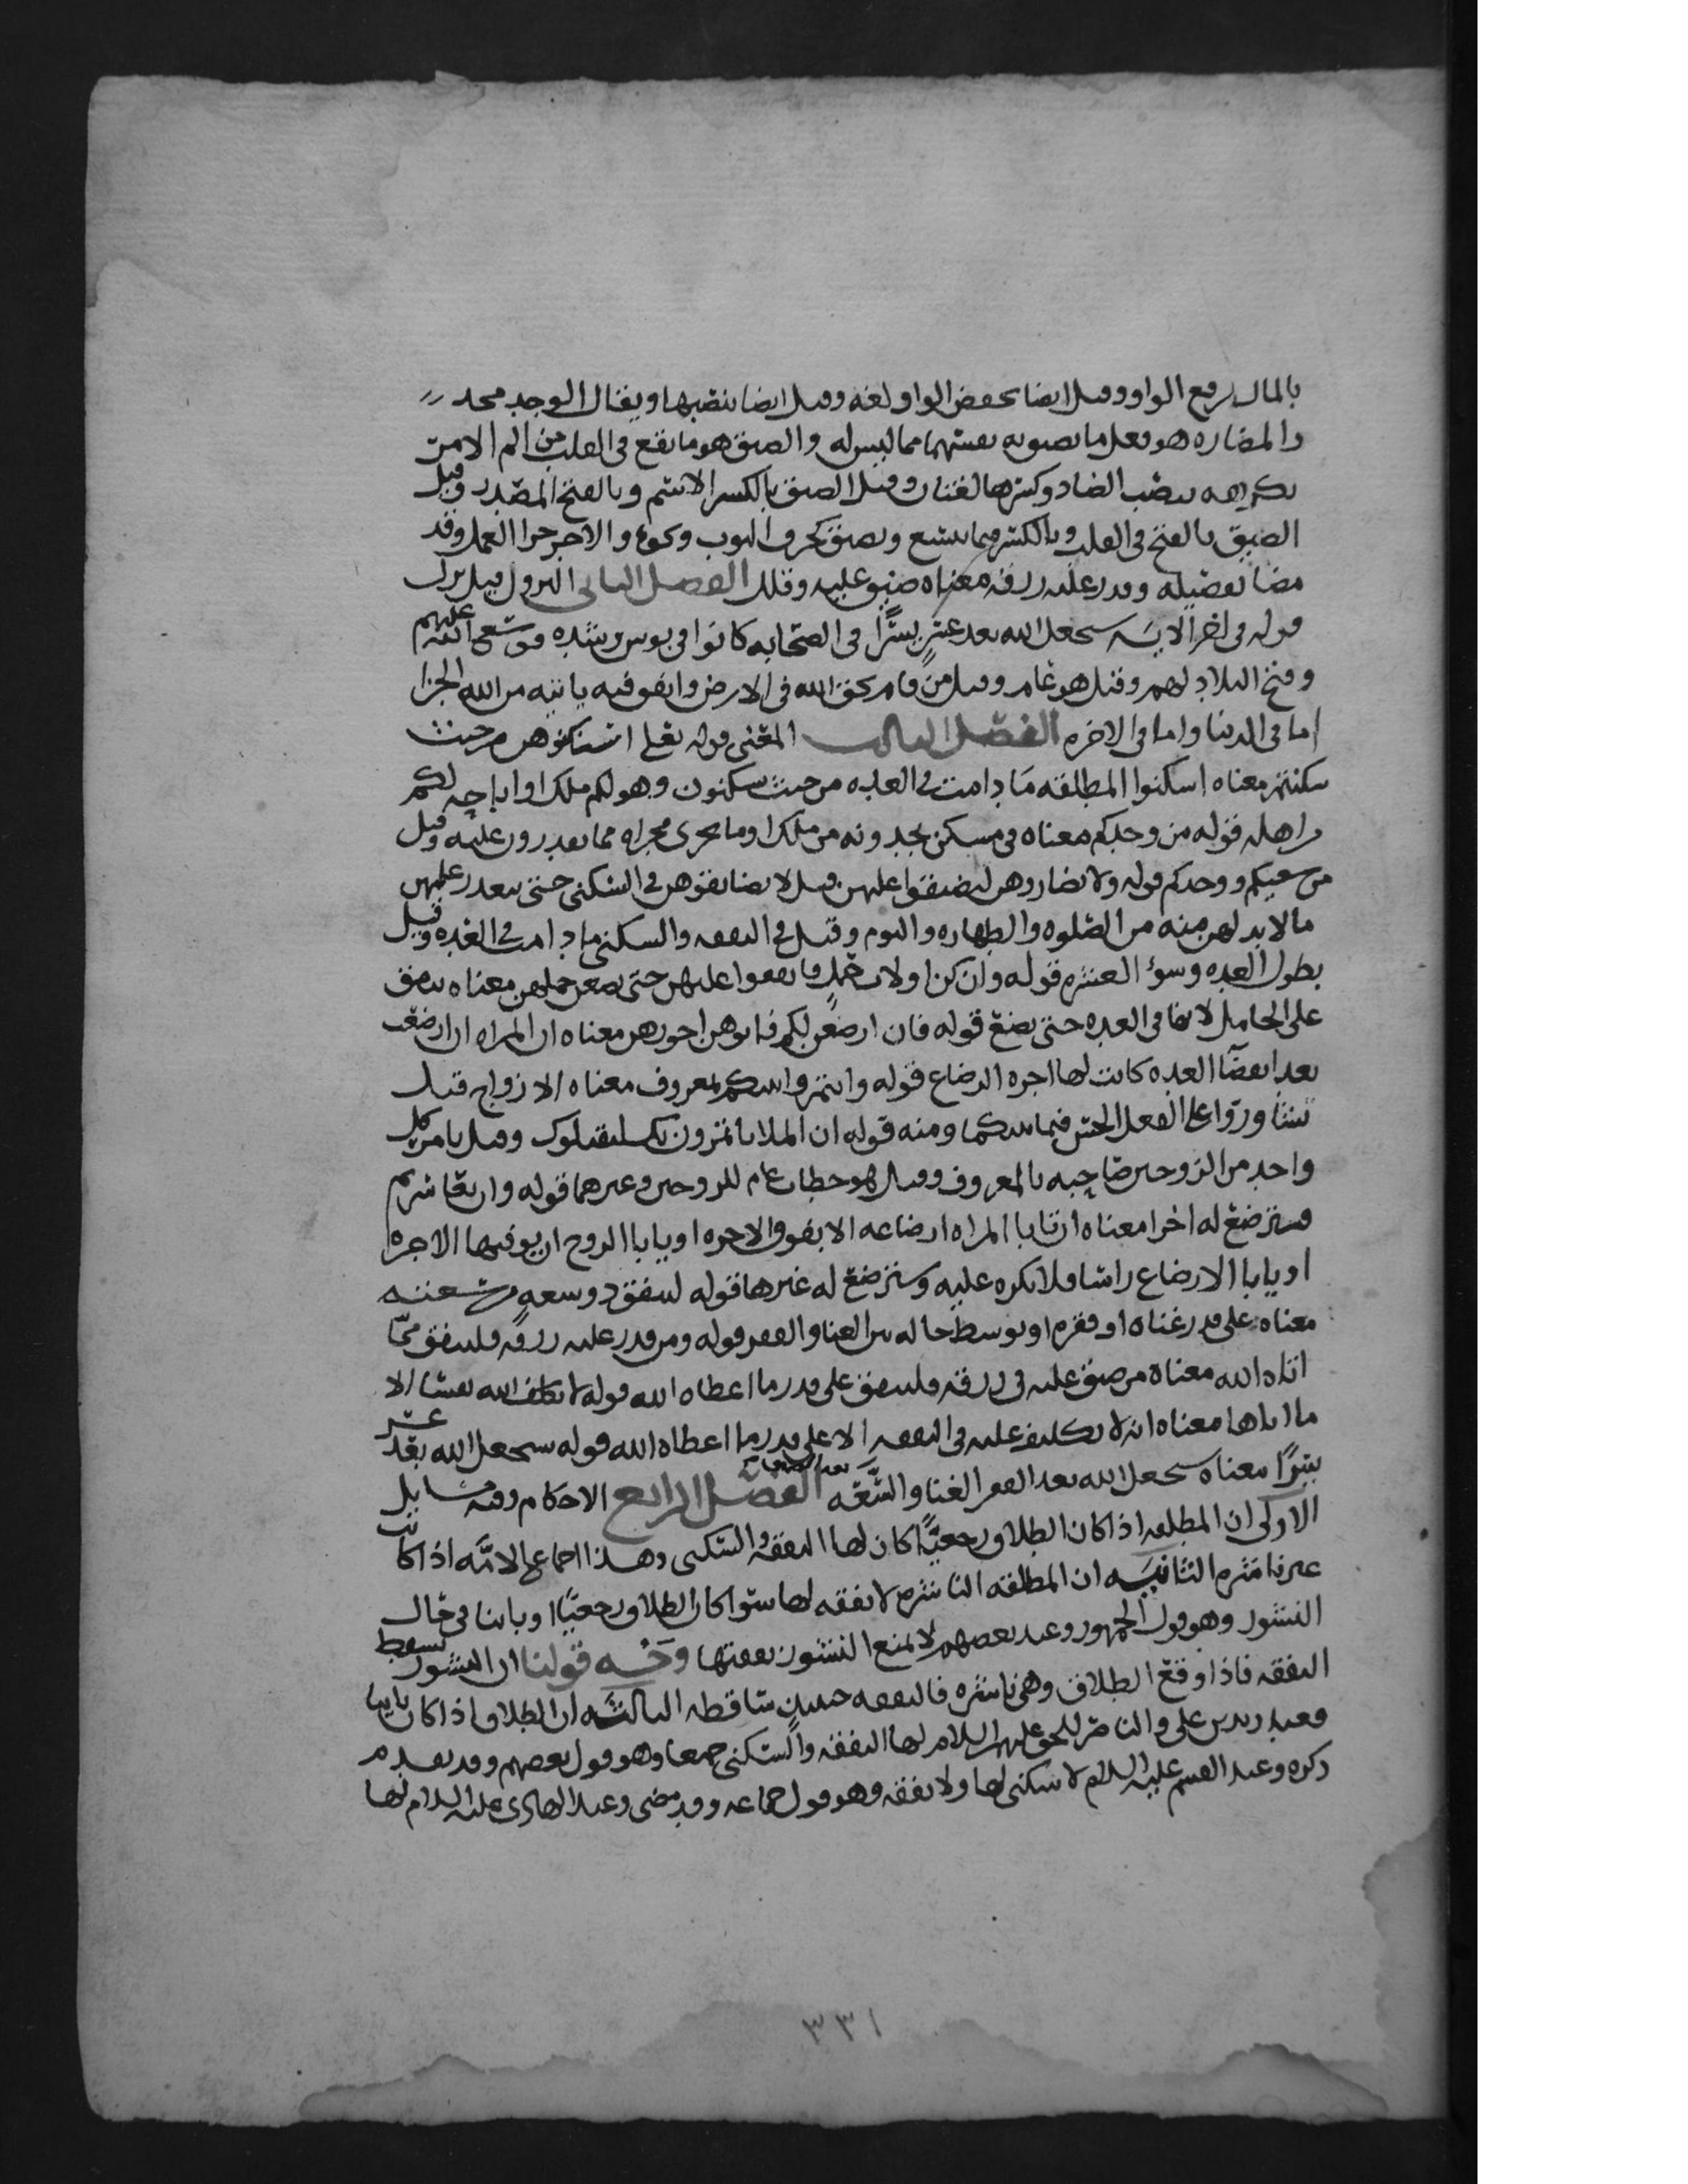 بالمال برفع الواو وقيل ايضا بخفض الواو لغه وقيل ايضا بنصبها ويقال الوجد محد
والمضاره هو فعل ما نفسهما مما ليس له والضيق هو ما يقع في القلب من الم الامر
بكريهه بنصب الضاد وكسرها لغتان وقيل الضيق بالكسر الاسم وبالفتح المصدر وقيل
الضيق بالفتح في القلب وبالكسر فيما يتسع ويضيق نحو الثوب ونحوه والاجر جزا العمل وقد
مضا تفصيله وقدر عليه رزقه معناه ضيق عليه وقلل الفصل الثاني النزول قيل نزل
قوله في اخر الايه سيجعل الله بعد عسر يسرًا في الصحابه كانوا في بوس وشده فوسع الله عليهم
وفتح البلاد لهم وقيل هو عام وقيل من قام بحق الله في الارض وانفق فيه ياتيه من الله الجزا
اما في الدنيا واما في الاخره الفصل الثالث المعنى قوله تعلى اسكنوهن من حيث
سكنتم معناه اسكنوا المطلقه ما دامت في العده من حيث تسكنون وهو لكم ملك او اباحه لكم
من اهله قوله من وجدكم معناه في مسكن تجدونه من ملك او ما يجري مجراه مما تقدرون عليه وقيل
من سعيكم ووجدكم قوله ولا تضاروهن لتضيقوا عليهن قيل لا تضايقوهن في السكنى حتى يتعذر عليهن
ما لا بد لهن منه من الصلوه والطهاره والنوم وقيل في النفقه والسكنى ما دامت في العده وقيل
بطول العده وسوء العشره قوله وان كن اولات حمل فانفقوا عليهن حتى يضعن حملهن معناه ينفق
على الحامل لانها في العده حتى تضع قوله فان ارضعن لكم فاتوهن اجورهن معناه ان المراه ان ارضعت
بعد انقضا العده كانت لها اجره الرضاع قوله وائتمروا بينكم بمعروف معناه الازواج قيل
تشاوروا على الفعل الحسن فيما بينكما ومنه قوله ان الملا ياتمرون بك ليقتلوك وقيل يامر كل
واحد من الزوجين صاحبه بالمعروف وقيل هو خطاب عام للزوجين وغيرهما قوله وان تعاسرتم
فسترضع له اخرا معناه ان تابا المراه ارضاعه الا بفوق الاجره او يابا الزوج ان يوفيها الاجره
او يابا الارضاع راسا فلا تكره عليه وسترضع له غيرها قوله لينفق ذو سعه من سعته
معناه على قدر غناه او فقره او توسط حاله بين الغنا والفقر قوله ومن قدر عليه رزقه فلينفق ممّا
اتاه الله معناه من ضيق عليه في رزقه فلينفق على قدر ما اعطاه الله قوله لا يكلف الله نفسًا الا
ما اتاها معناه انه لا تكليف عليه في النفقه الا على قدر ما اعطاه الله قوله سيجعل الله بعد عسر
يسرًا معناه سيجعل الله بعد الفقر الغنا والسّعه الفصل الرابع الاحكام وفيه مسايل
الاولى ان المطلقه اذا كان الطلاق رجعيًّا كان لها النفقه والسكنى وهذا اجماع الا انّه اذا كانت
غير ناشزه الثانيه ان المطلقه الناشزه لا نفقه لها سوا كان الطلاق رجعيًّا او باينا في حال
النشوز وهو قول الجمهور وعند بعضهم لا يمنع النشوز نفقتها وجه قولنا ان النشوز يسقط
النفقه فاذا وقع الطلاق وهي ناشزه فالنفقه حينيذ ساقطه الثالثه ان الطلاق اذا كان باينا
فعند زيد بن علي والناصر للحق عليهم السلام لها النفقه والسكنى جميعا وهو قول بعضهم وقد تقدم
ذكره وعند القسم عليه السلام لا سكنى لها ولا نفقه وهو قول جماعه وقد مضى وعند الهادي عليه السلام لها
٣٣١